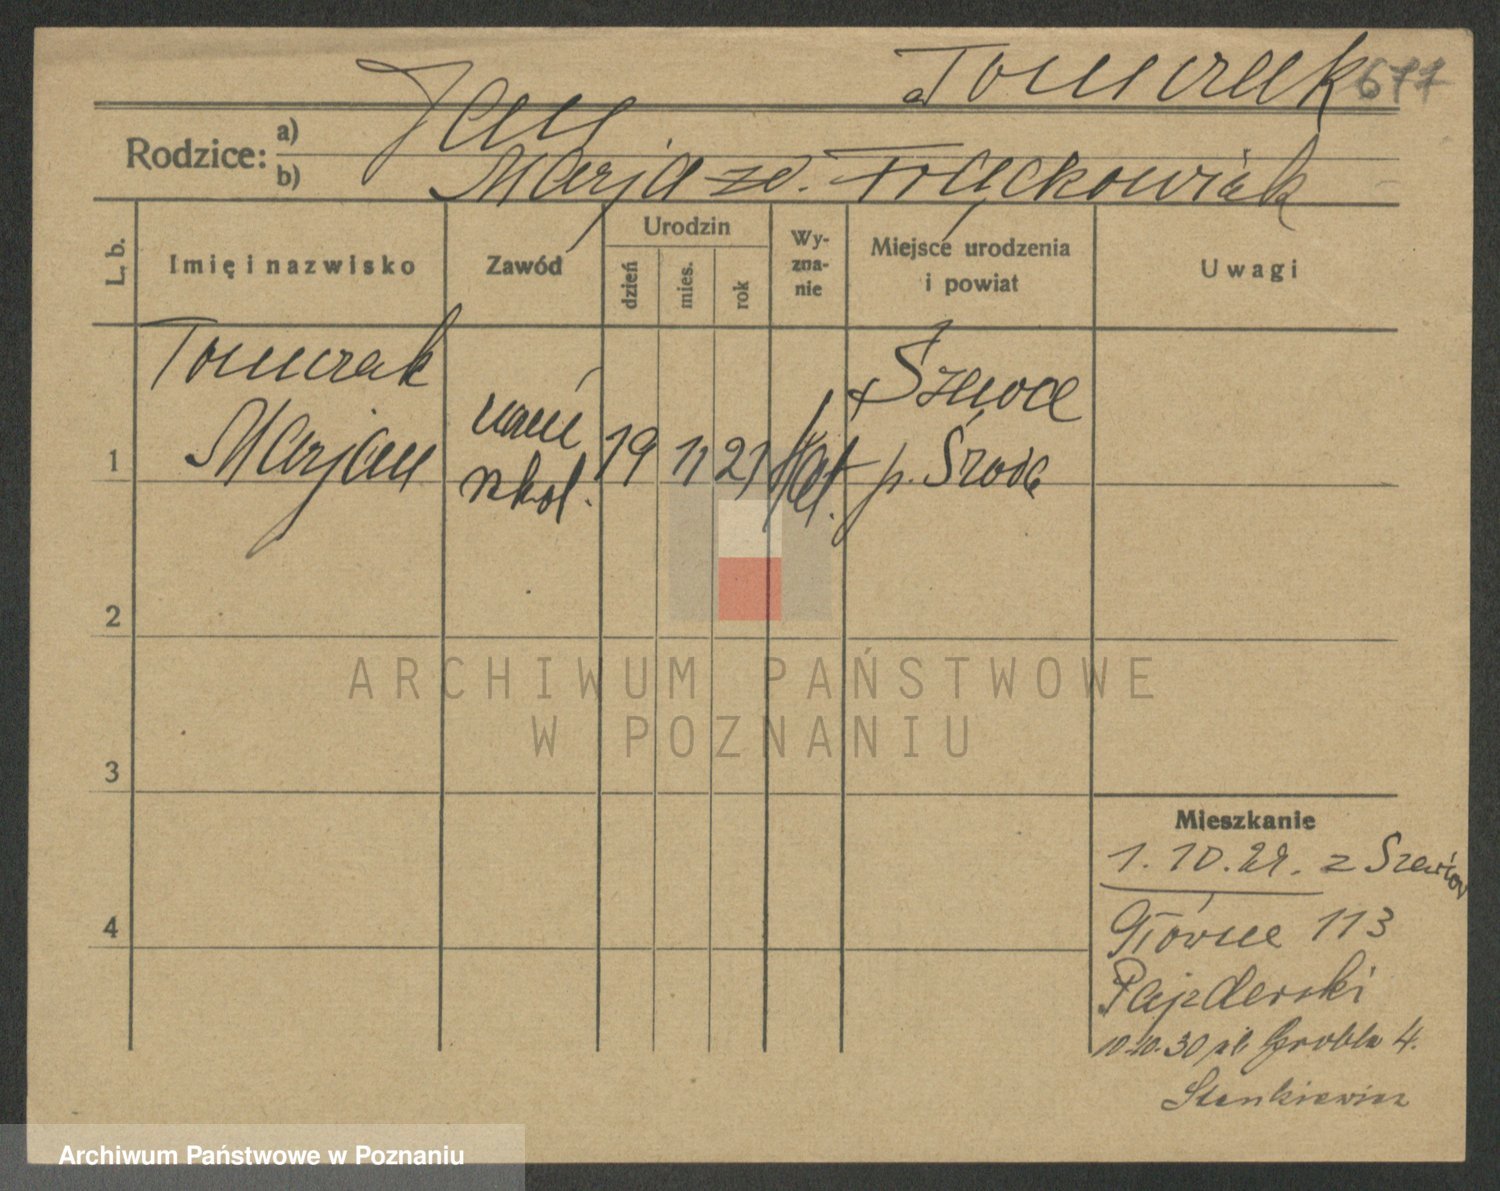 Tomczak 677
Rodzice:
a) Jan
b) Marja zd. Frąckowiak
L. b.
Imię i nazwisko
Zawód
Urodzin
dzień
mies.
rok
Wy-
zna-
nie
Miejsce urodzenia
i powiat
Uwagi
Tomczak
Marjan
1
szkol.
19 11 21
kat.
Szewce
p. Środa
2
3
4
Mieszkanie
1.10.29. z Szewców
Główna 113
Pajzderski
10.10.30 pl. Grobla 4.
Sienkiewicz
ARCHIWUM PAŃSTWOWE
W POZNANIU
Archiwum Państwowe w Poznaniu